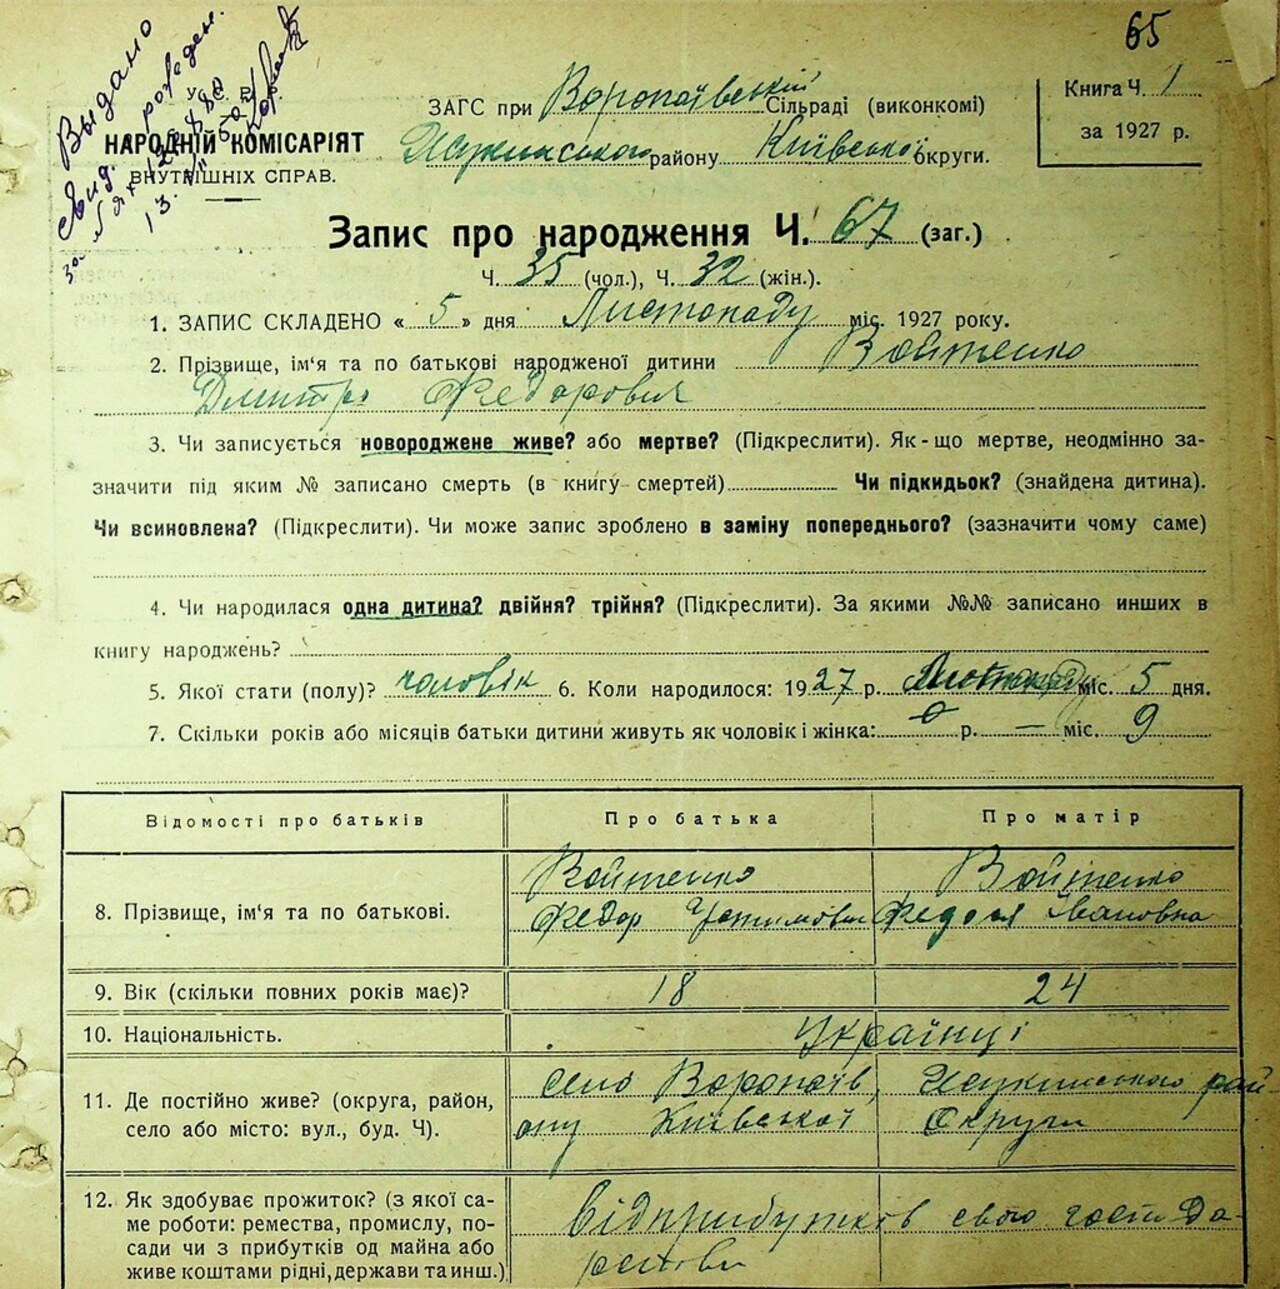 65
Выдано
свид. рожден.
У. С. Р. Р.
НАРОДНІЙ КОМІСАРІЯТ
ВНУТРІШНІХ СПРАВ.
ЗАГС при Воропаївській Сільраді (виконкомі)
району Київської округи.
Книга Ч. 1
за 1927 р.
Запис про народження Ч. 67 (заг.)
Ч. 35 (чол.), Ч. 32 (жін.).
1. ЗАПИС СКЛАДЕНО « 5 » дня Листопаду міс. 1927 року.
2. Прізвище, ім'я та по батькові народженої дитини Войтенко
Дмитро Федорович
3. Чи записується новороджене живе? або мертве? (Підкреслити). Як-що мертве, неодмінно за-
значити під яким № записано смерть (в книгу смертей) Чи підкидьок? (знайдена дитина).
Чи всиновлена? (Підкреслити). Чи може запис зроблено в заміну попереднього? (зазначити чому саме)
4. Чи народилася одна дитина? двійня? трійня? (Підкреслити). За якими №№ записано инших в
книгу народжень?
5. Якої стати (полу)? чоловік 6. Коли народилося: 1927 р. Листопаду міс. 5 дня.
7. Скільки років або місяців батьки дитини живуть як чоловік і жінка: 0 р. — міс. 9
Відомості про батьків Про батька Про матір
8. Прізвище, ім'я та по батькові. Войтенко Войтенко
Федор Федося Івановна
9. Вік (скільки повних років має)? 18 24
10. Національність. Українці
11. Де постійно живе? (округа, район,
село або місто: вул., буд. Ч).
село Воропаїв, рай-
ону Київської Округи
12. Як здобуває прожиток? (з якої са-
ме роботи: ремества, промислу, по-
сади чи з прибутків од майна або
живе коштами рідні, держави та инш.)
Від прибутків свого госпо да-
рстви